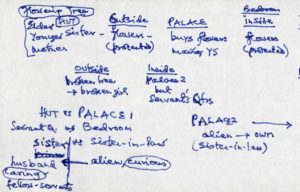 Flowering Tree
HUT
Outside
PALACE
Bedroom
Inside
Elder
Younger Sister -
Mother
flowers -
(protected)
buys flowers
marries YS
flowers
(protected)
Outside
broken tree
→ broken girl
Inside
palace 2
but
Servants' Qtrs
HUT vs PALACE 1
Servant Q. vs Bedroom
Sister vs Sister-in-law
husband
alien/curious
caring
fellow-servants
PALACE 2
alien → own
(sister-in-law)